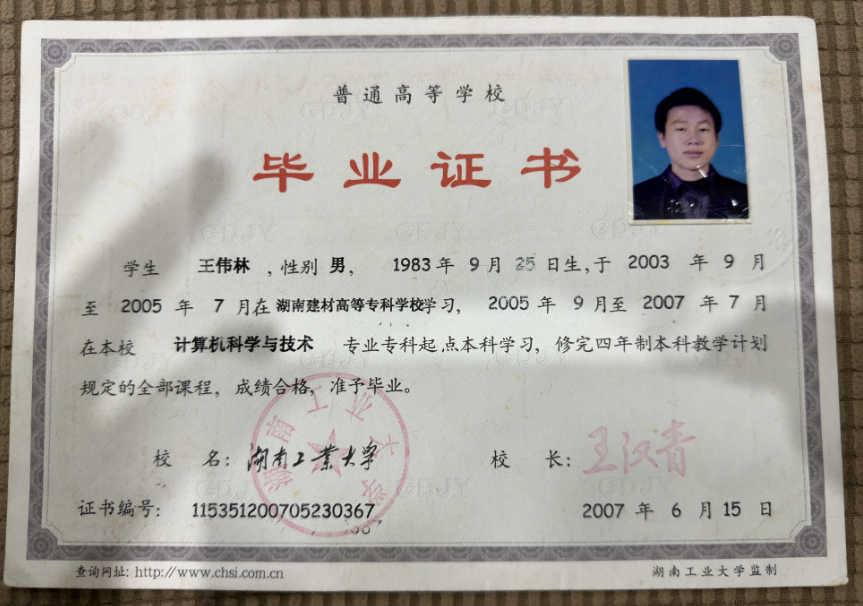 普通高等学校
毕业证书
学生 王伟林 ，性别 男， 1983年 9 月 25 日生，于 2003 年 9 月
至 2005 年 7 月在 湖南建材高等专科学校学习， 2005 年 9 月至 2007 年 7 月
在本校 计算机科学与技术 专业专科起点本科学习，修完四年制本科教学计划
规定的全部课程，成绩合格，准予毕业。
校 名：湖南工业大学 校 长：王汉青
湖南工业大学
证书编号： 115351200705230367 2007 年 6 月 15 日
查询网址: http://www.chsi.com.cn 湖南工业大学监制